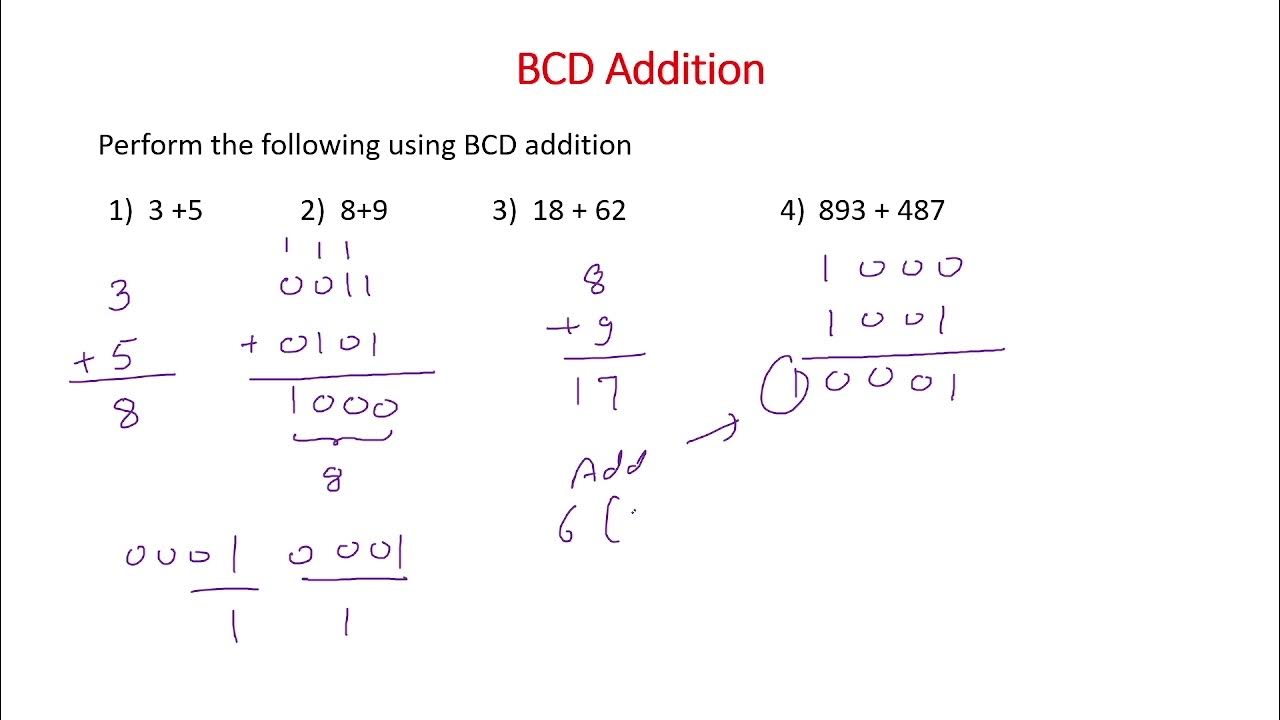 BCD Addition
Perform the following using BCD addition
1) 3 +5 2) 8+9 3) 18 + 62 4) 893 + 487
1 1 1
3
+ 5
8
0011
+ 0101
1000
8
8
+ 9
17
1000
1001
10001
Add
6 (
0001 0001
1 1